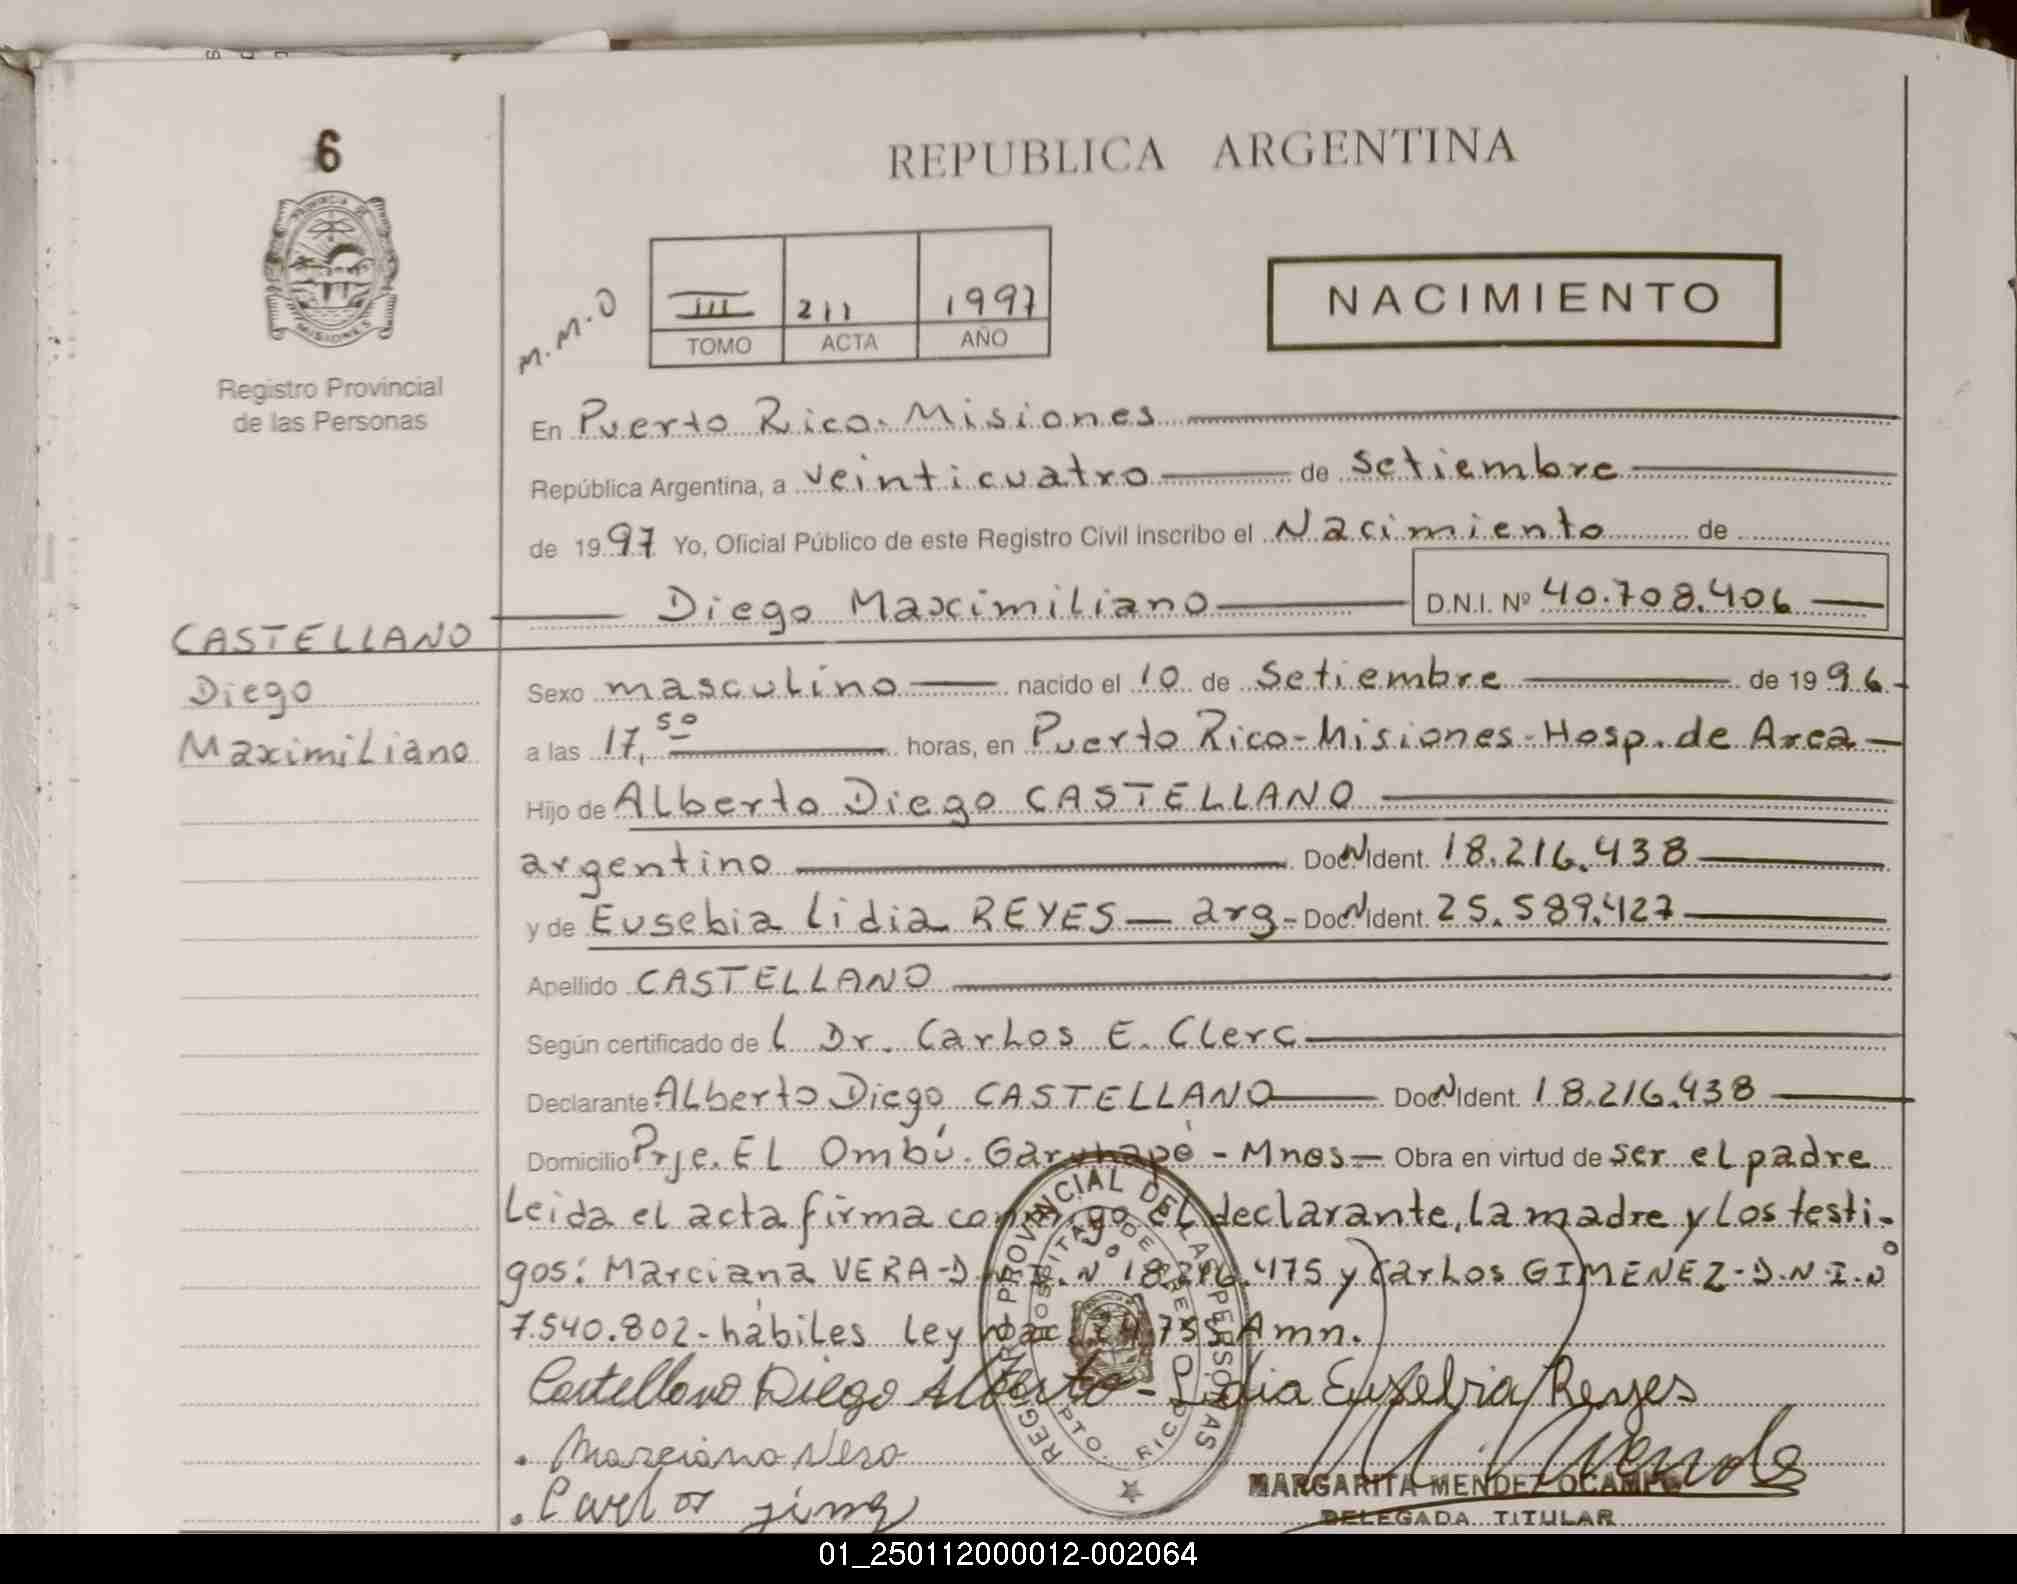 6
REPUBLICA ARGENTINA
PROVINCIA DE
MISIONES
Registro Provincial
de las Personas
M.M.O
III 211 1997
TOMO ACTA AÑO
NACIMIENTO
En Puerto Rico. Misiones
República Argentina, a veinticuatro de setiembre
de 1997 Yo, Oficial Público de este Registro Civil inscribo el Nacimiento de
Diego Maximiliano D.N.I. Nº 40.708.406
CASTELLANO
Diego
Maximiliano
Sexo masculino nacido el 10 de Setiembre de 1996
a las 17,50 horas, en Puerto Rico-Misiones-Hosp. de Area
Hijo de Alberto Diego CASTELLANO
argentino Doc. N Ident. 18.216.438
y de Eusebia Lidia REYES - arg- Doc. N Ident. 25.589.427
Apellido CASTELLANO
Según certificado de l Dr. Carlos E. Clerc
Declarante Alberto Diego CASTELLANO Doc. N Ident. 18.216.438
Domicilio Prje. El Ombú. Garuhapé - Mnes - Obra en virtud de ser el padre
Leida el acta firma conmigo el declarante, la madre y los testi-
gos: Marciana VERA-D.N.I.Nº 18.216.475 y Carlos GIMENEZ-D.N.I.Nº
7.540.802-hábiles ley nac. Amn.
Castellano Diego Alberto - Lidia Eusebia Reyes
. Marciana Vera
. Carlos
REGISTRO PROVINCIAL DE LAS PERSONAS
HOSPITAL DE AREA
PTO. RICO
MARGARITA MENDEZ OCAMPO
DELEGADA TITULAR
01_250112000012-002064